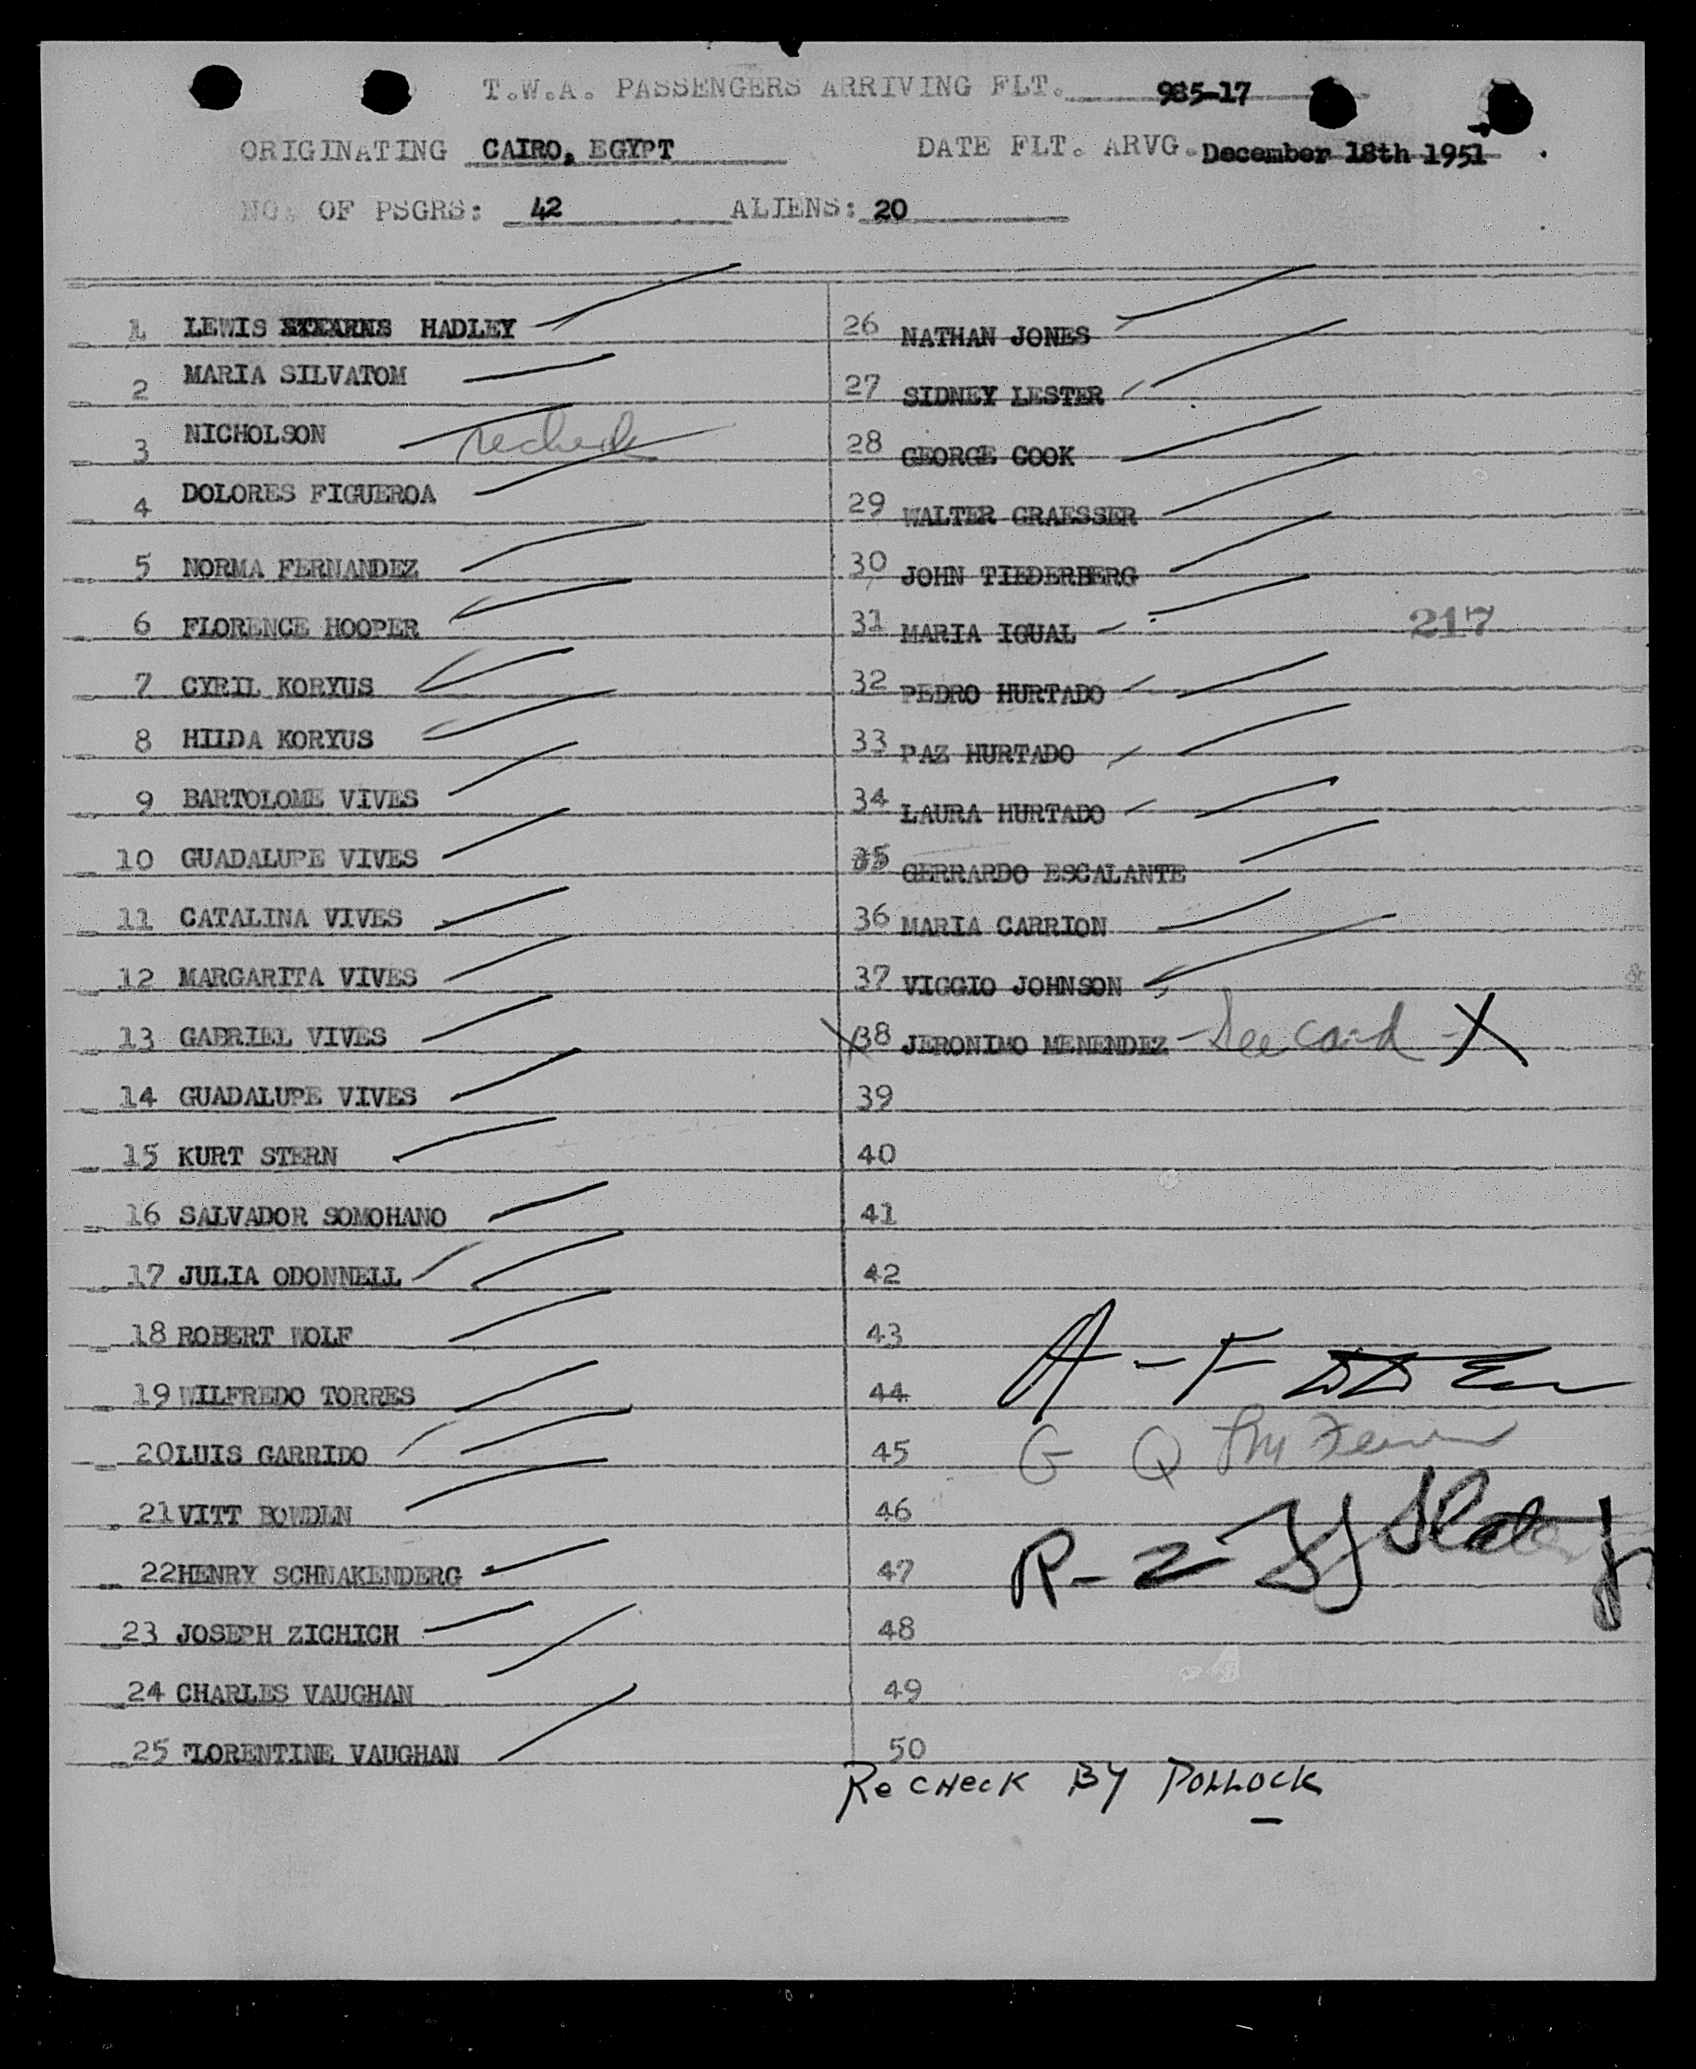 T.W.A. PASSENGERS ARRIVING FLT. 985-17
ORIGINATING CAIRO, EGYPT DATE FLT. ARVG. December 18th 1951
NO. OF PSGRS: 42 ALIENS: 20
1 LEWIS STEARNS HADLEY
2 MARIA SILVATOM
3 NICHOLSON recheck
4 DOLORES FIGUEROA
5 NORMA FERNANDEZ
6 FLORENCE HOOPER
7 CYRIL KORYUS
8 HILDA KORYUS
9 BARTOLOME VIVES
10 GUADALUPE VIVES
11 CATALINA VIVES
12 MARGARITA VIVES
13 GABRIEL VIVES
14 GUADALUPE VIVES
15 KURT STERN
16 SALVADOR SOMOHANO
17 JULIA ODONNELL
18 ROBERT WOLF
19 WILFREDO TORRES
20 LUIS GARRIDO
21 VITT BOWDEN
22 HENRY SCHNAKENDERG
23 JOSEPH ZICHICH
24 CHARLES VAUGHAN
25 FLORENTINE VAUGHAN
26 NATHAN JONES
27 SIDNEY LESTER
28 GEORGE COOK
29 WALTER GRAESSER
30 JOHN TIEDERBERG
31 MARIA IGUAL 217
32 PEDRO HURTADO
33 PAZ HURTADO
34 LAURA HURTADO
35 GERRARDO ESCALANTE
36 MARIA CARRION
37 VIGGIO JOHNSON
X 38 JERONIMO MENENDEZ - See card - X
39
40
41
42
43
44 A - F
45 G Q
46
47 R - Z Slater
48
49
50
Recheck By Pollock